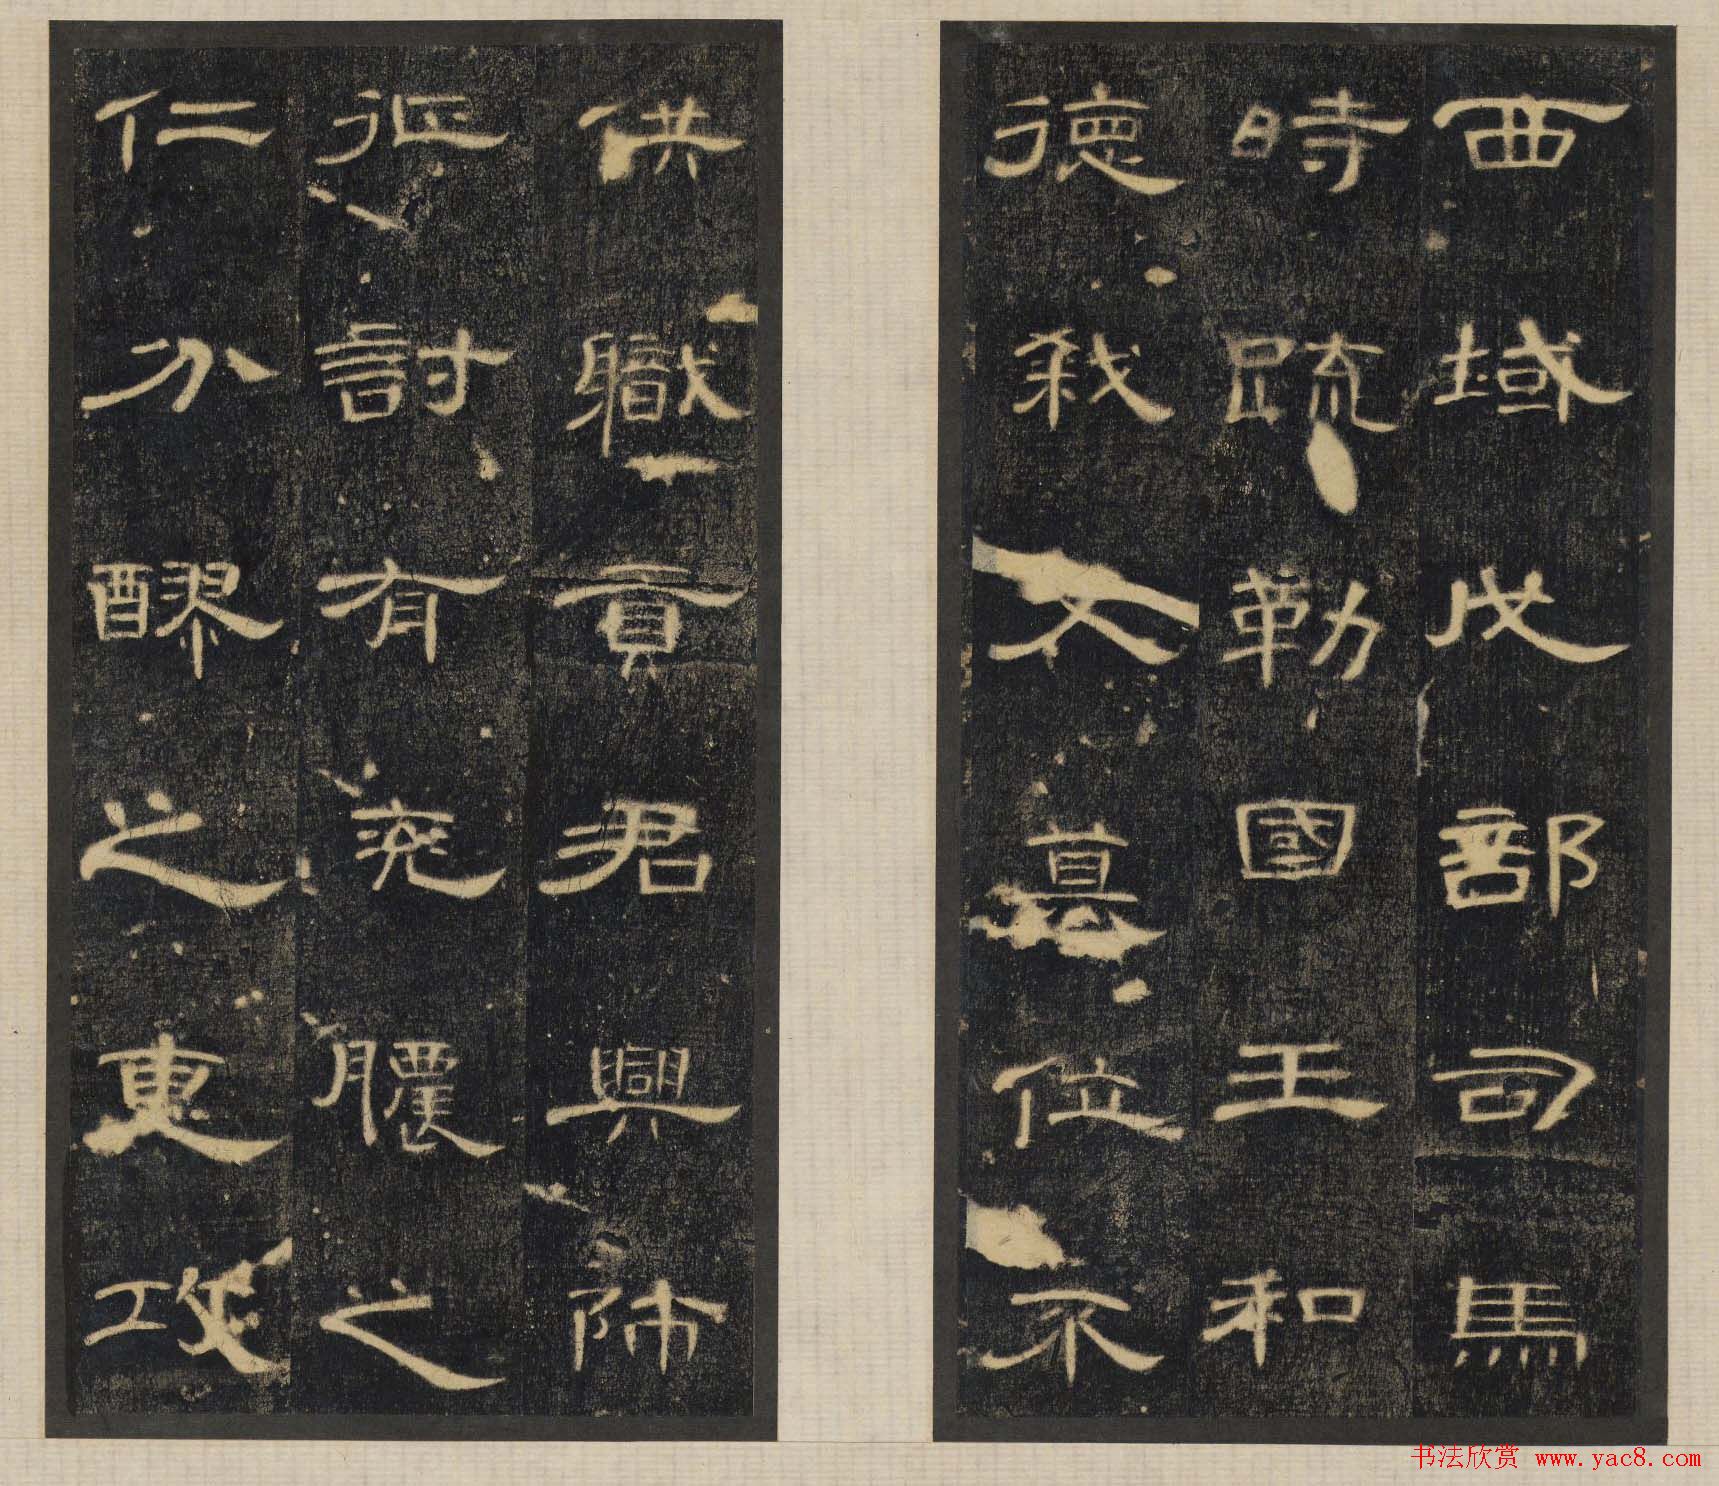 西域戊部司馬
時疏勒國王和
德弒父篡位不
供職貢君興師
征討有兖膿之
仁分醪之惠攻
书法欣赏 www.yac8.com